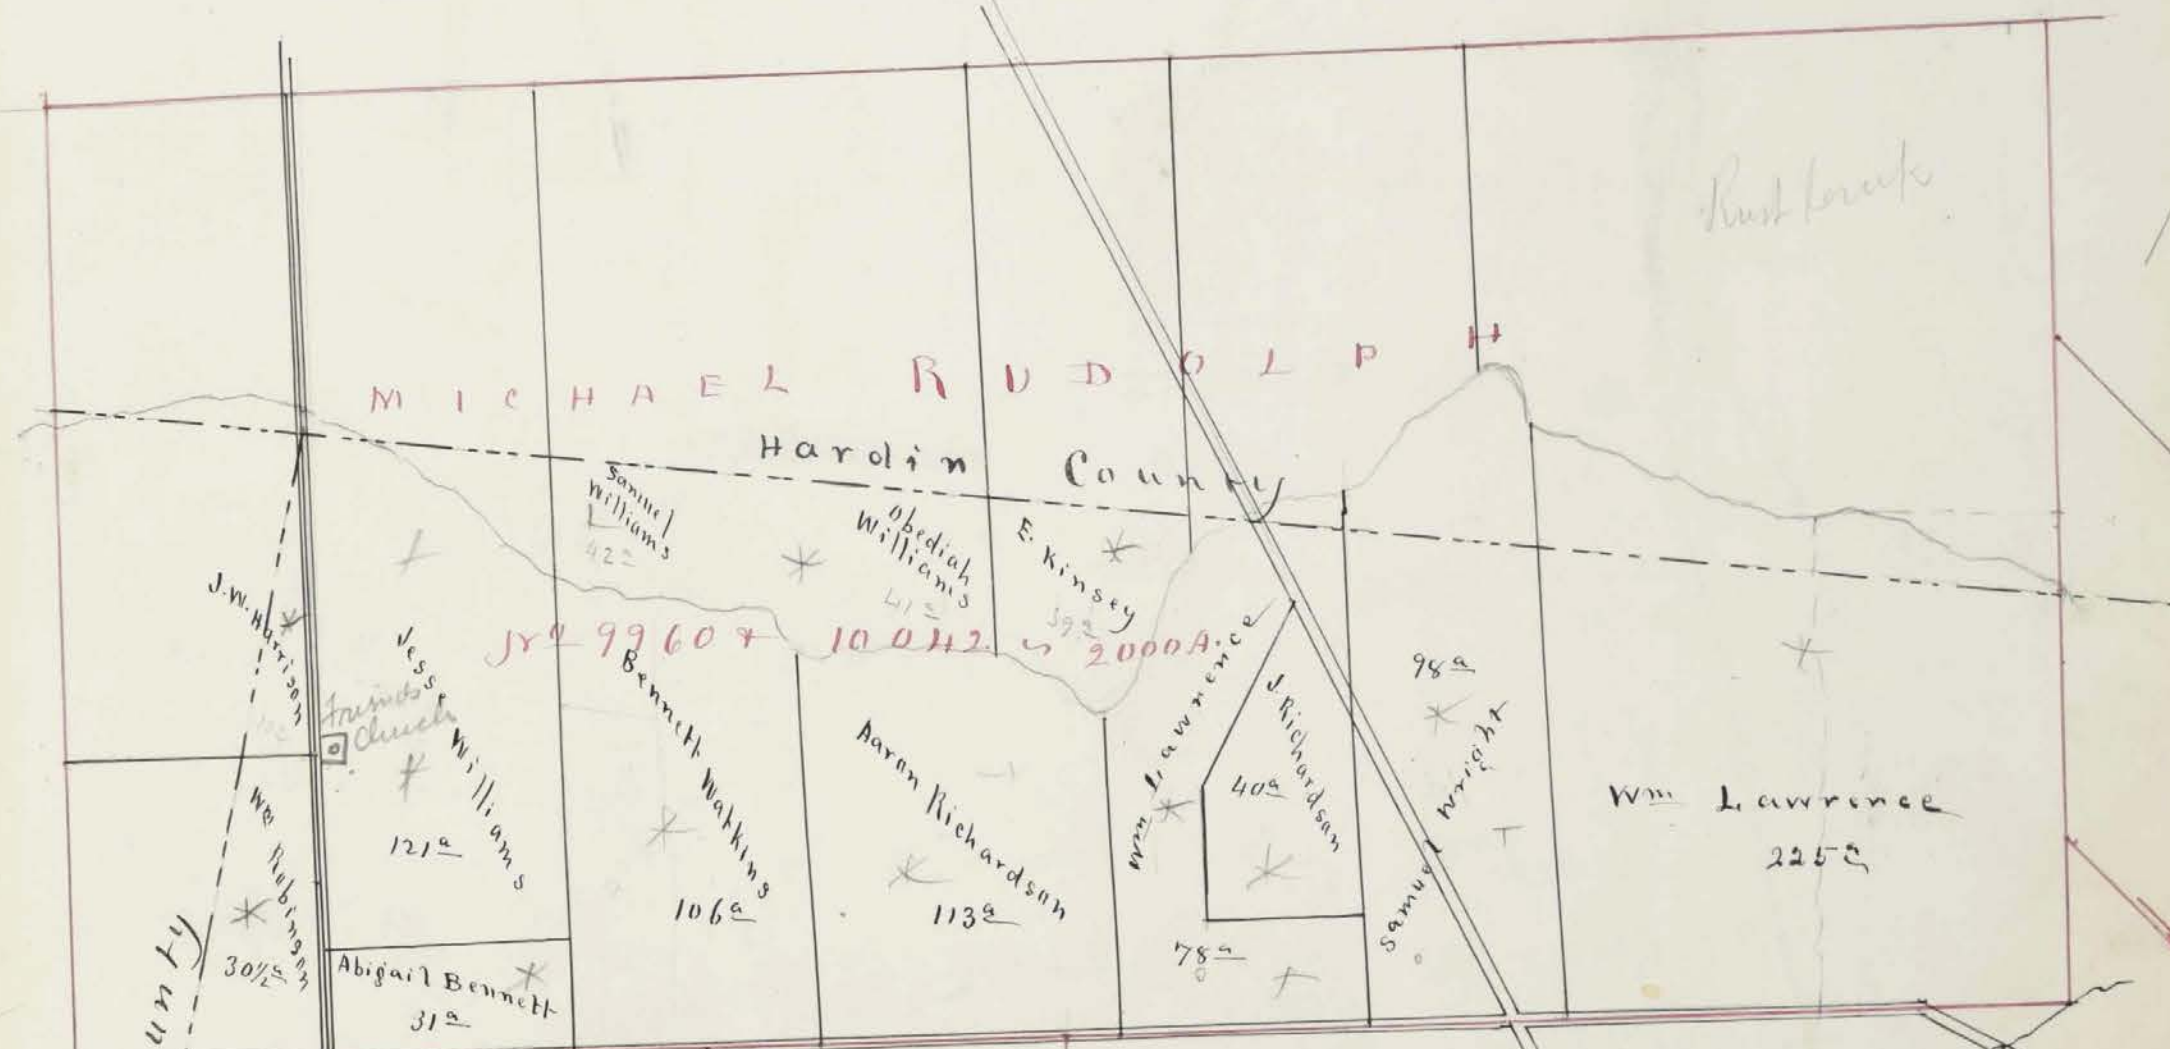 MICHAEL RUDOLPH
Hardin County
Samuel
Williams
42 a
Obediah
Williams
41 a
E. Kinsey
39 a
J. W. Harrison
No 9960 & 10042 2000 A.
Friends
Church
Jesse Williams
121 a
Bennett Watkins
106 a
Aaran Richardson
113 a
Wm Lawrence
78 a
J. Richardson
40 a
98 a
Samuel Wright
Wm Lawrence
225 a
Wm Robinson
30 1/2 a
Abigail Bennett
31 a
unty